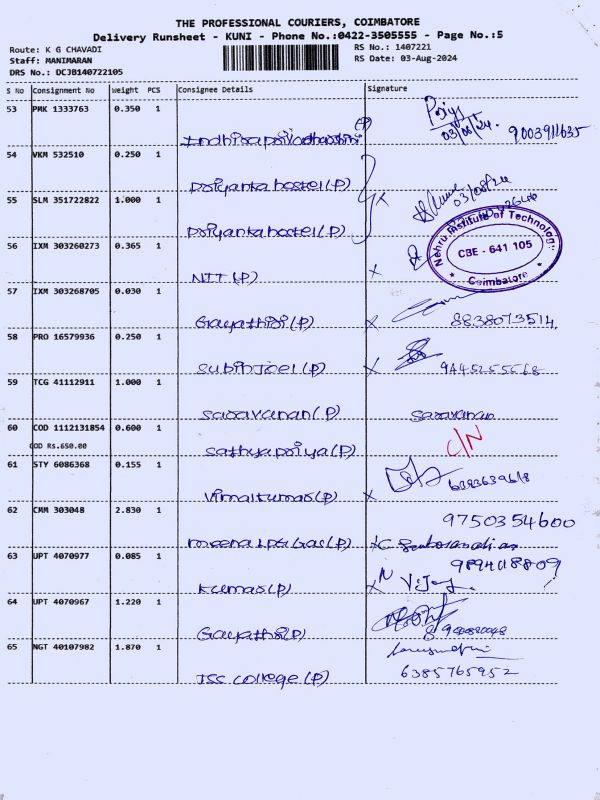 THE PROFESSIONAL COURIERS, COIMBATORE
Delivery Runsheet - KUNI - Phone No.:0422-3505555 - Page No.:5
Route: K G CHAVADI
RS No.: 1407221
Staff: MANIMARAN
RS Date: 03-Aug-2024
DRS No.: DCJB140722105
S No Consignment No Weight PCS Consignee Details Signature
53 PMK 1333763 0.350 1
03/08/24. 9003911635
54 VKM 532510 0.250 1
Priyanka hostel (P)
03/08/24
55 SLM 351722822 1.000 1
Priyanka hostel (P)
56 IXM 303260273 0.365 1
NIT (P) x
Nehru Institute of Technology
CBE - 641 105
Coimbatore
57 IXM 303268705 0.030 1
Gayathiri (P) x 8838073514.
58 PRO 16579936 0.250 1
Subin Joel (P) x
59 TCG 41112911 1.000 1
Saravanan (P) Saravanan
60 COD 1112131854 0.600 1
COD Rs.650.00
C/N
Sathyapriya (P)
61 STY 6086368 0.155 1
Vimalkumar (P) x
62 CMM 303048 2.830 1
9750354600
Meena LPG Gas (P)
63 UPT 4070977 0.085 1
9894118809
Kumar (P) x N Vijay
64 UPT 4070967 1.220 1
Gayathri (P)
65 NGT 40107982 1.870 1
JSS College (P) 6385765952